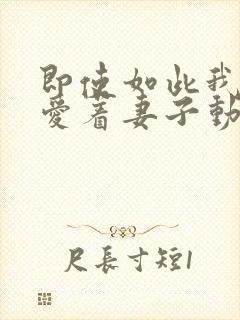 即使如此我
愛着妻子動
尺長寸短1